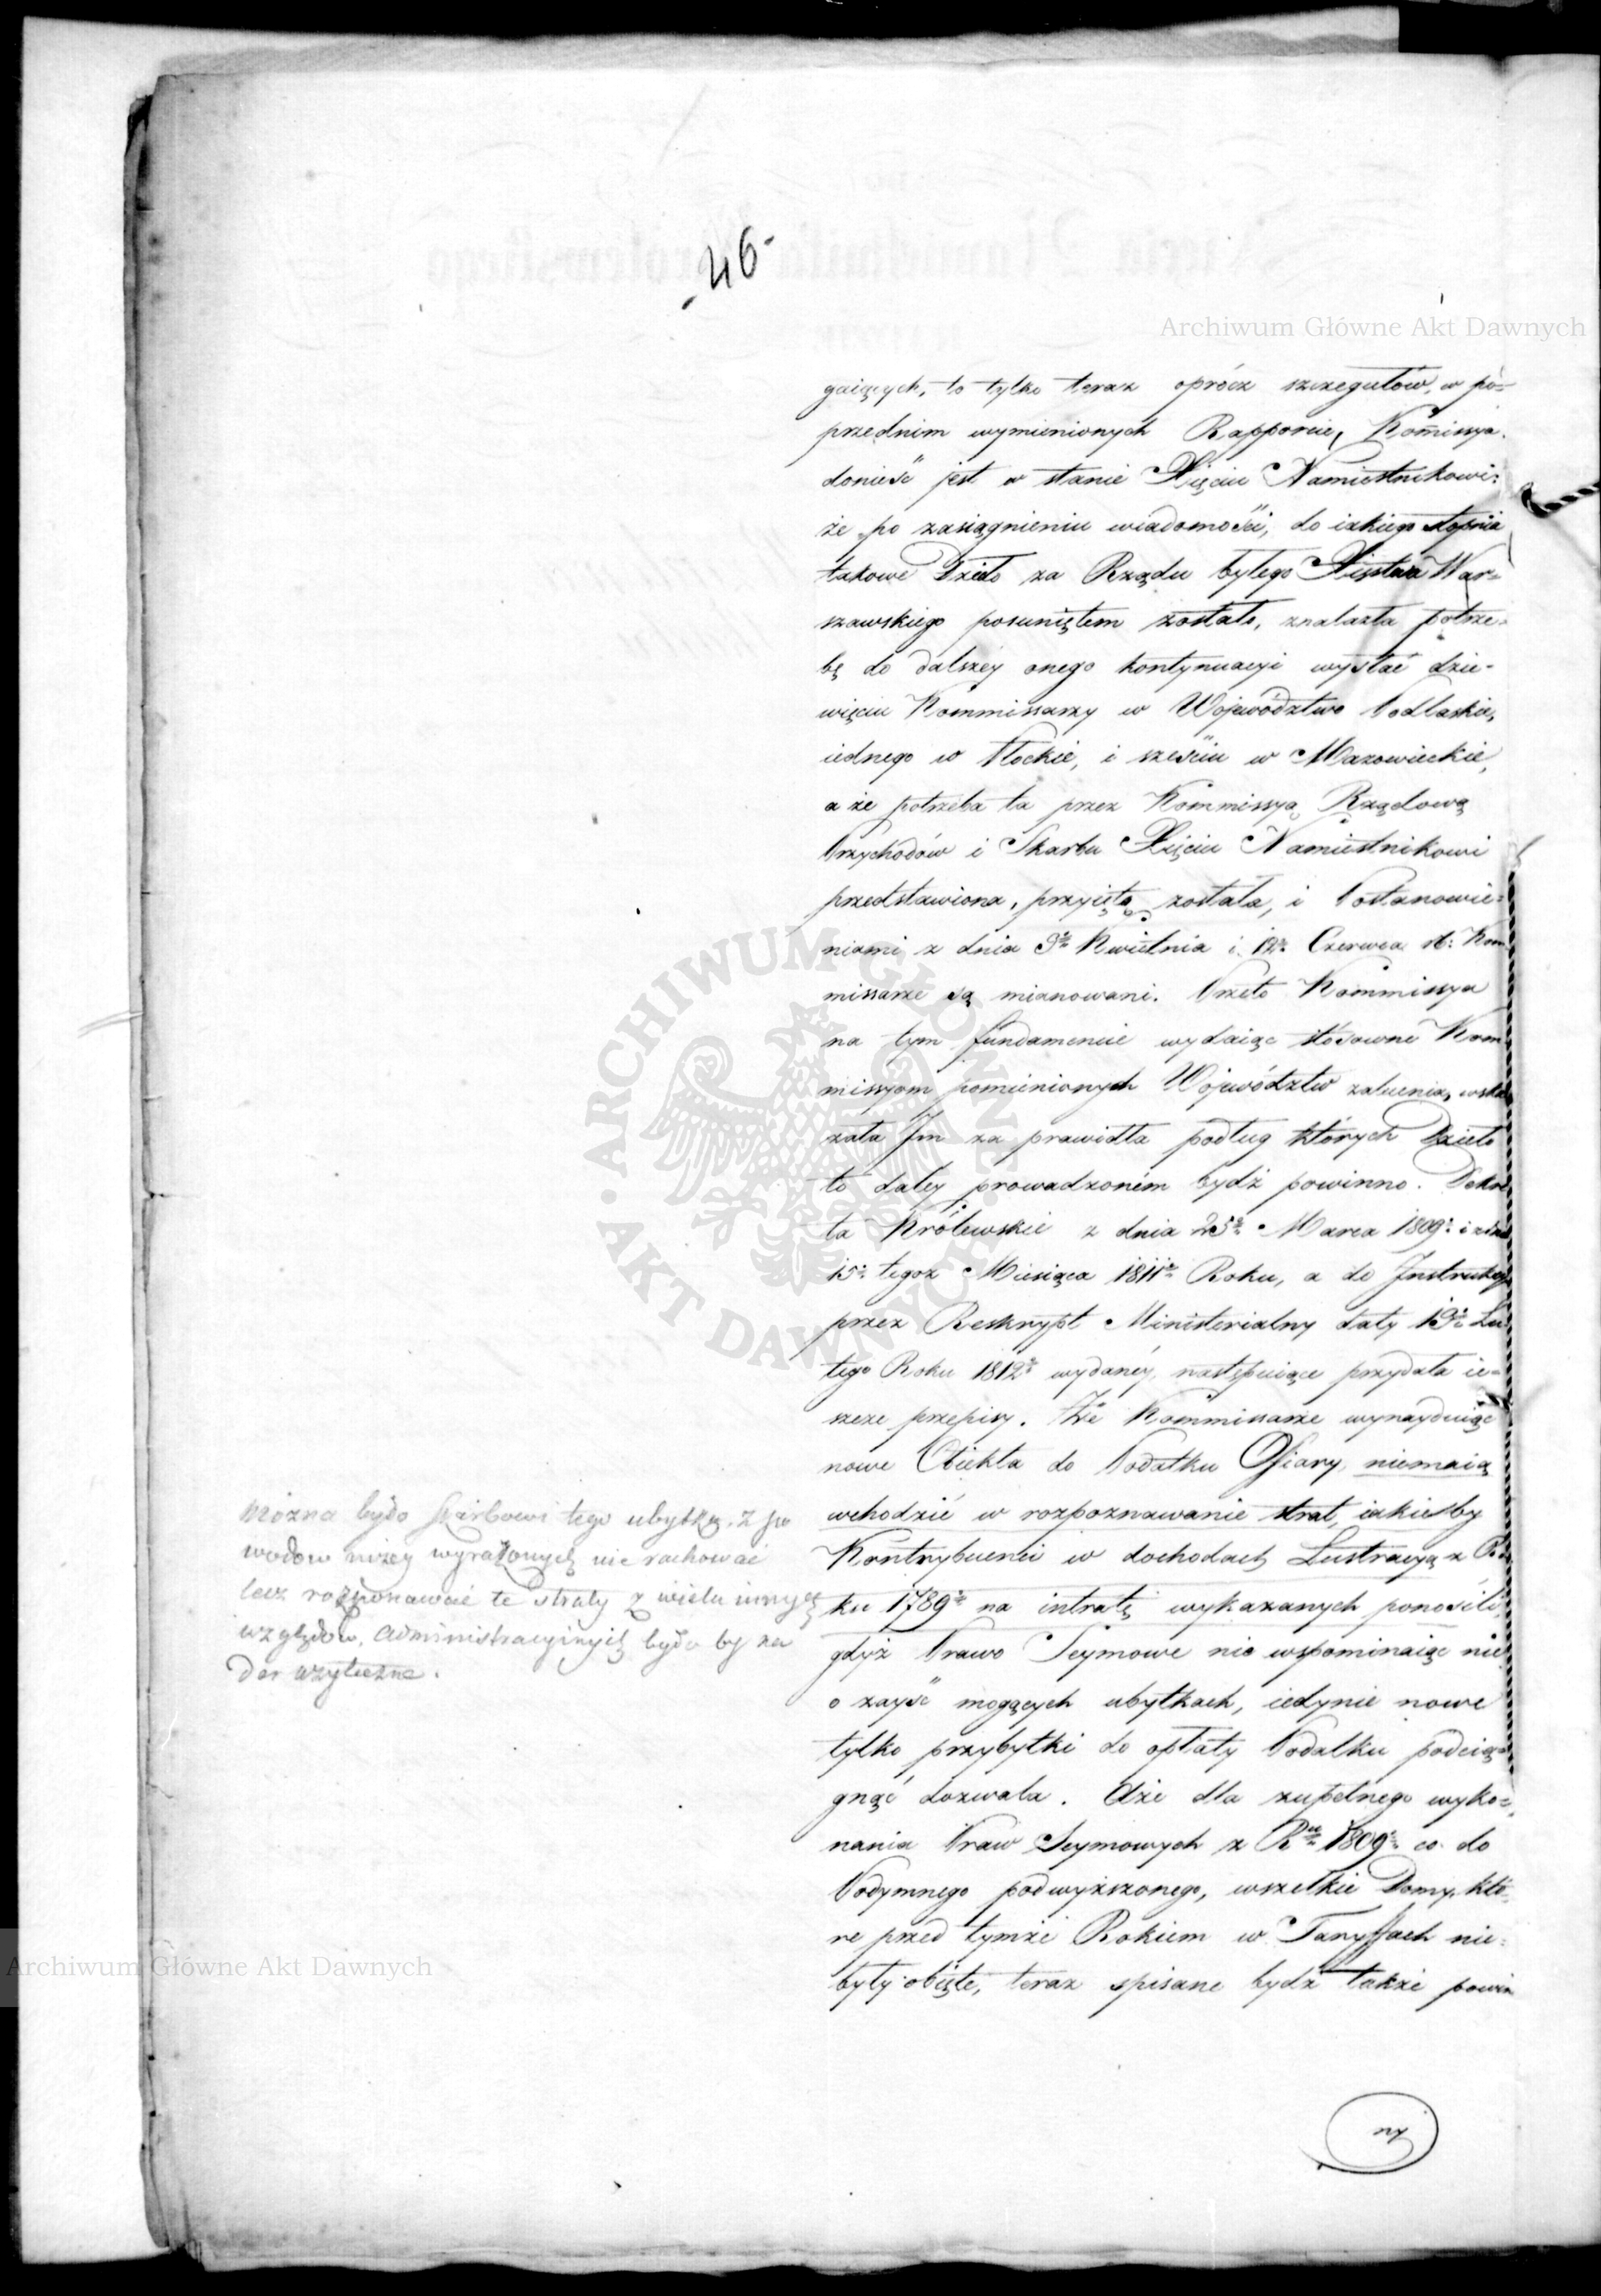 -46-
Archiwum Główne Akt Dawnych
gaiących, to tylko teraz oprócz szczegułów, w po=
przednim wymienionych Rapporcie, Kommissya
donieść jest w stanie Xięciu Namiestnikowi:
że po zasiągnieniu wiadomości, do iakiego stopnia
takowe Dzieło za Rządu byłego Xięstwa War=
szawskiego posuniętem zostało, znalazła potrze=
bę do dalszey onego kontynuacyi wysłać dzie=
więciu Kommissarzy w Województwo Podlaskie,
iednego w Płockie, i sześciu w Mazowieckie,
a że potrzeba ta przez Kommissyą Rządową
Przychodów i Skarbu Xięciu Namiestnikowi
przedstawiona, przyiętą została, i Postanowie=
niami z dnia 9º Kwietnia i 12º Czerwca rb: Kom
missarze są mianowani. Przeto Kommissya
na tym fundamencie wydaiąc stosowne Kom
missyom pomienionych Województw zalecenia, wska
zała Im za prawidła podług których Dzieło
to daley prowadzoném bydź powinno. Dekre
ta Królewskie z dnia 25º Marca 1809º i z dnia
15º tegoż Miesiąca 1811º Roku, a do Instrukcyi
przez Reskrypt Ministerialny daty 19º Lu
tego Roku 1812º wydaney, następuiące przydała ie=
szcze przepisy. Że Kommissarze wynayduiąc
nowe Obiekta do Podatku Ofiary, niemaią
wchodzić w rozpoznawanie strat, iakieby
Kontrybuenci w dochodach Lustracyą z Ro
ku 1789º na intratę wykazanych ponosili,
gdyż Prawo Seymowe nic wspominaiąc nie
o zayść mogących ubytkach, iedynie nowe
tylko przybytki do opłaty Podatku pociąg=
gnąć dozwala. Aże dla zupełnego wyko=
nania Praw Seymowych z Rº 1809º co do
Podymnego podwyższonego, wszelkie Domy, któ
re przed tymże Rokiem w Taryffach nie=
były obięte, teraz spisane bydź także powin
ny
Można było Skarbowi tego ubytku z po
wodów niżey wyrażonych nie rachować
lecz rozpoznawać te straty z wielu innych
względów administracyinych było by na
der użyteczne.
ARCHIWUM GŁÓWNE AKT DAWNYCH
Archiwum Główne Akt Dawnych